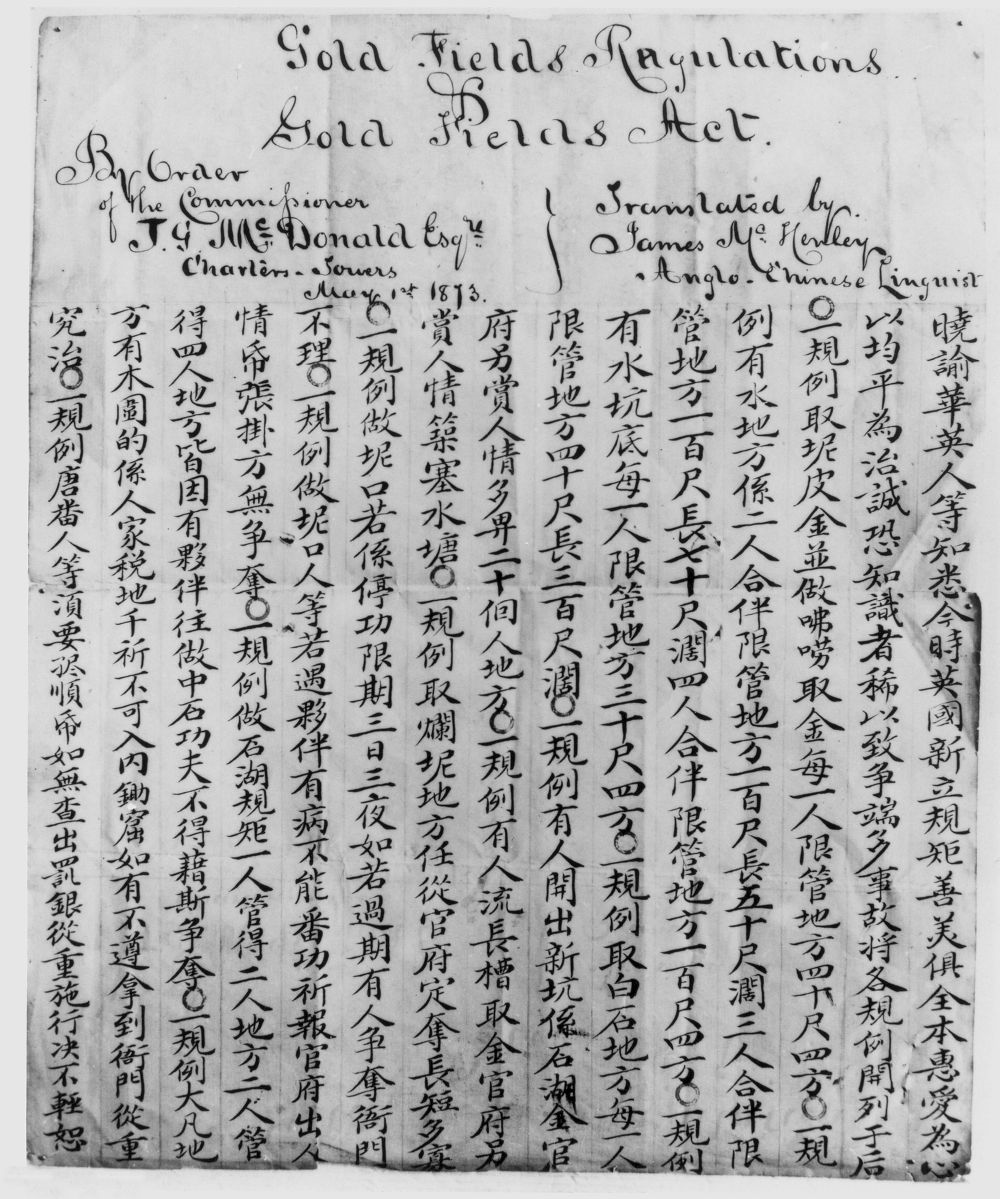 Gold Fields Regulations
&
Gold Fields Act.
By Order
of the Commissioner
J. G. Mc Donald Esqre
Charters-Towers
May 1st 1873.
Translated by
James Mc Henley
Anglo-Chinese Linguist
曉諭華英人等知悉今時英國新立規矩善美俱全本惠愛為心
以均平為治誠恐知識者稀以致争端多事故将各規例開列于后
〇一規例取坭皮金並做咈嘮取金每一人限管地方四十尺四方〇一規
例有水地方係二人合伴限管地方一百尺長五十尺濶三人合伴限
管地方一百尺長七十尺濶四人合伴限管地方一百尺四方〇一規例
有水坑底每一人限管地方三十尺四方〇一規例取白石地方每一人
限管地方四十尺長三百尺濶〇一規例有人開出新坑係石湖金官
府另賞人情多畀二十個人地方〇一規例有人流長槽取金官府另
賞人情築塞水塘〇一規例取爛坭地方任從官府定奪長短多寡
〇一規例做坭口若係停功限期三日三夜如若過期有人争奪衙門
不理〇一規例做坭口人等若遇夥伴有病不能番功祈報官府出人
情帋張掛方無争奪〇一規例做石湖規矩一人管得二人地方二人管
得四人地方皆因有夥伴往做中石功夫不得藉斯争奪〇一規例大凡地
方有木圍的係人家税地千祈不可入内鋤窟如有不遵拿到衙門從重
究治〇一規例唐畨人等須要孝順帋如無查出罰銀從重施行决不輕恕